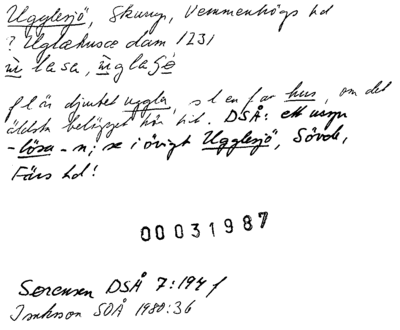 Ugglesjö, Skurup, Vemmenhögs hd
? Uglæhusæ dam 1231
ù lasa, ùglaSe
fl är djurbet uggla, sl en far hus, om det
äldsta belägget hör hit. DSÅ: ett ursp
-lösa-n; se i övrigt Ugglesjö, Sövde,
Färs hd!
00031987
Sørensen DSÅ 7:194 f
Isaksson SOÅ 1980:36